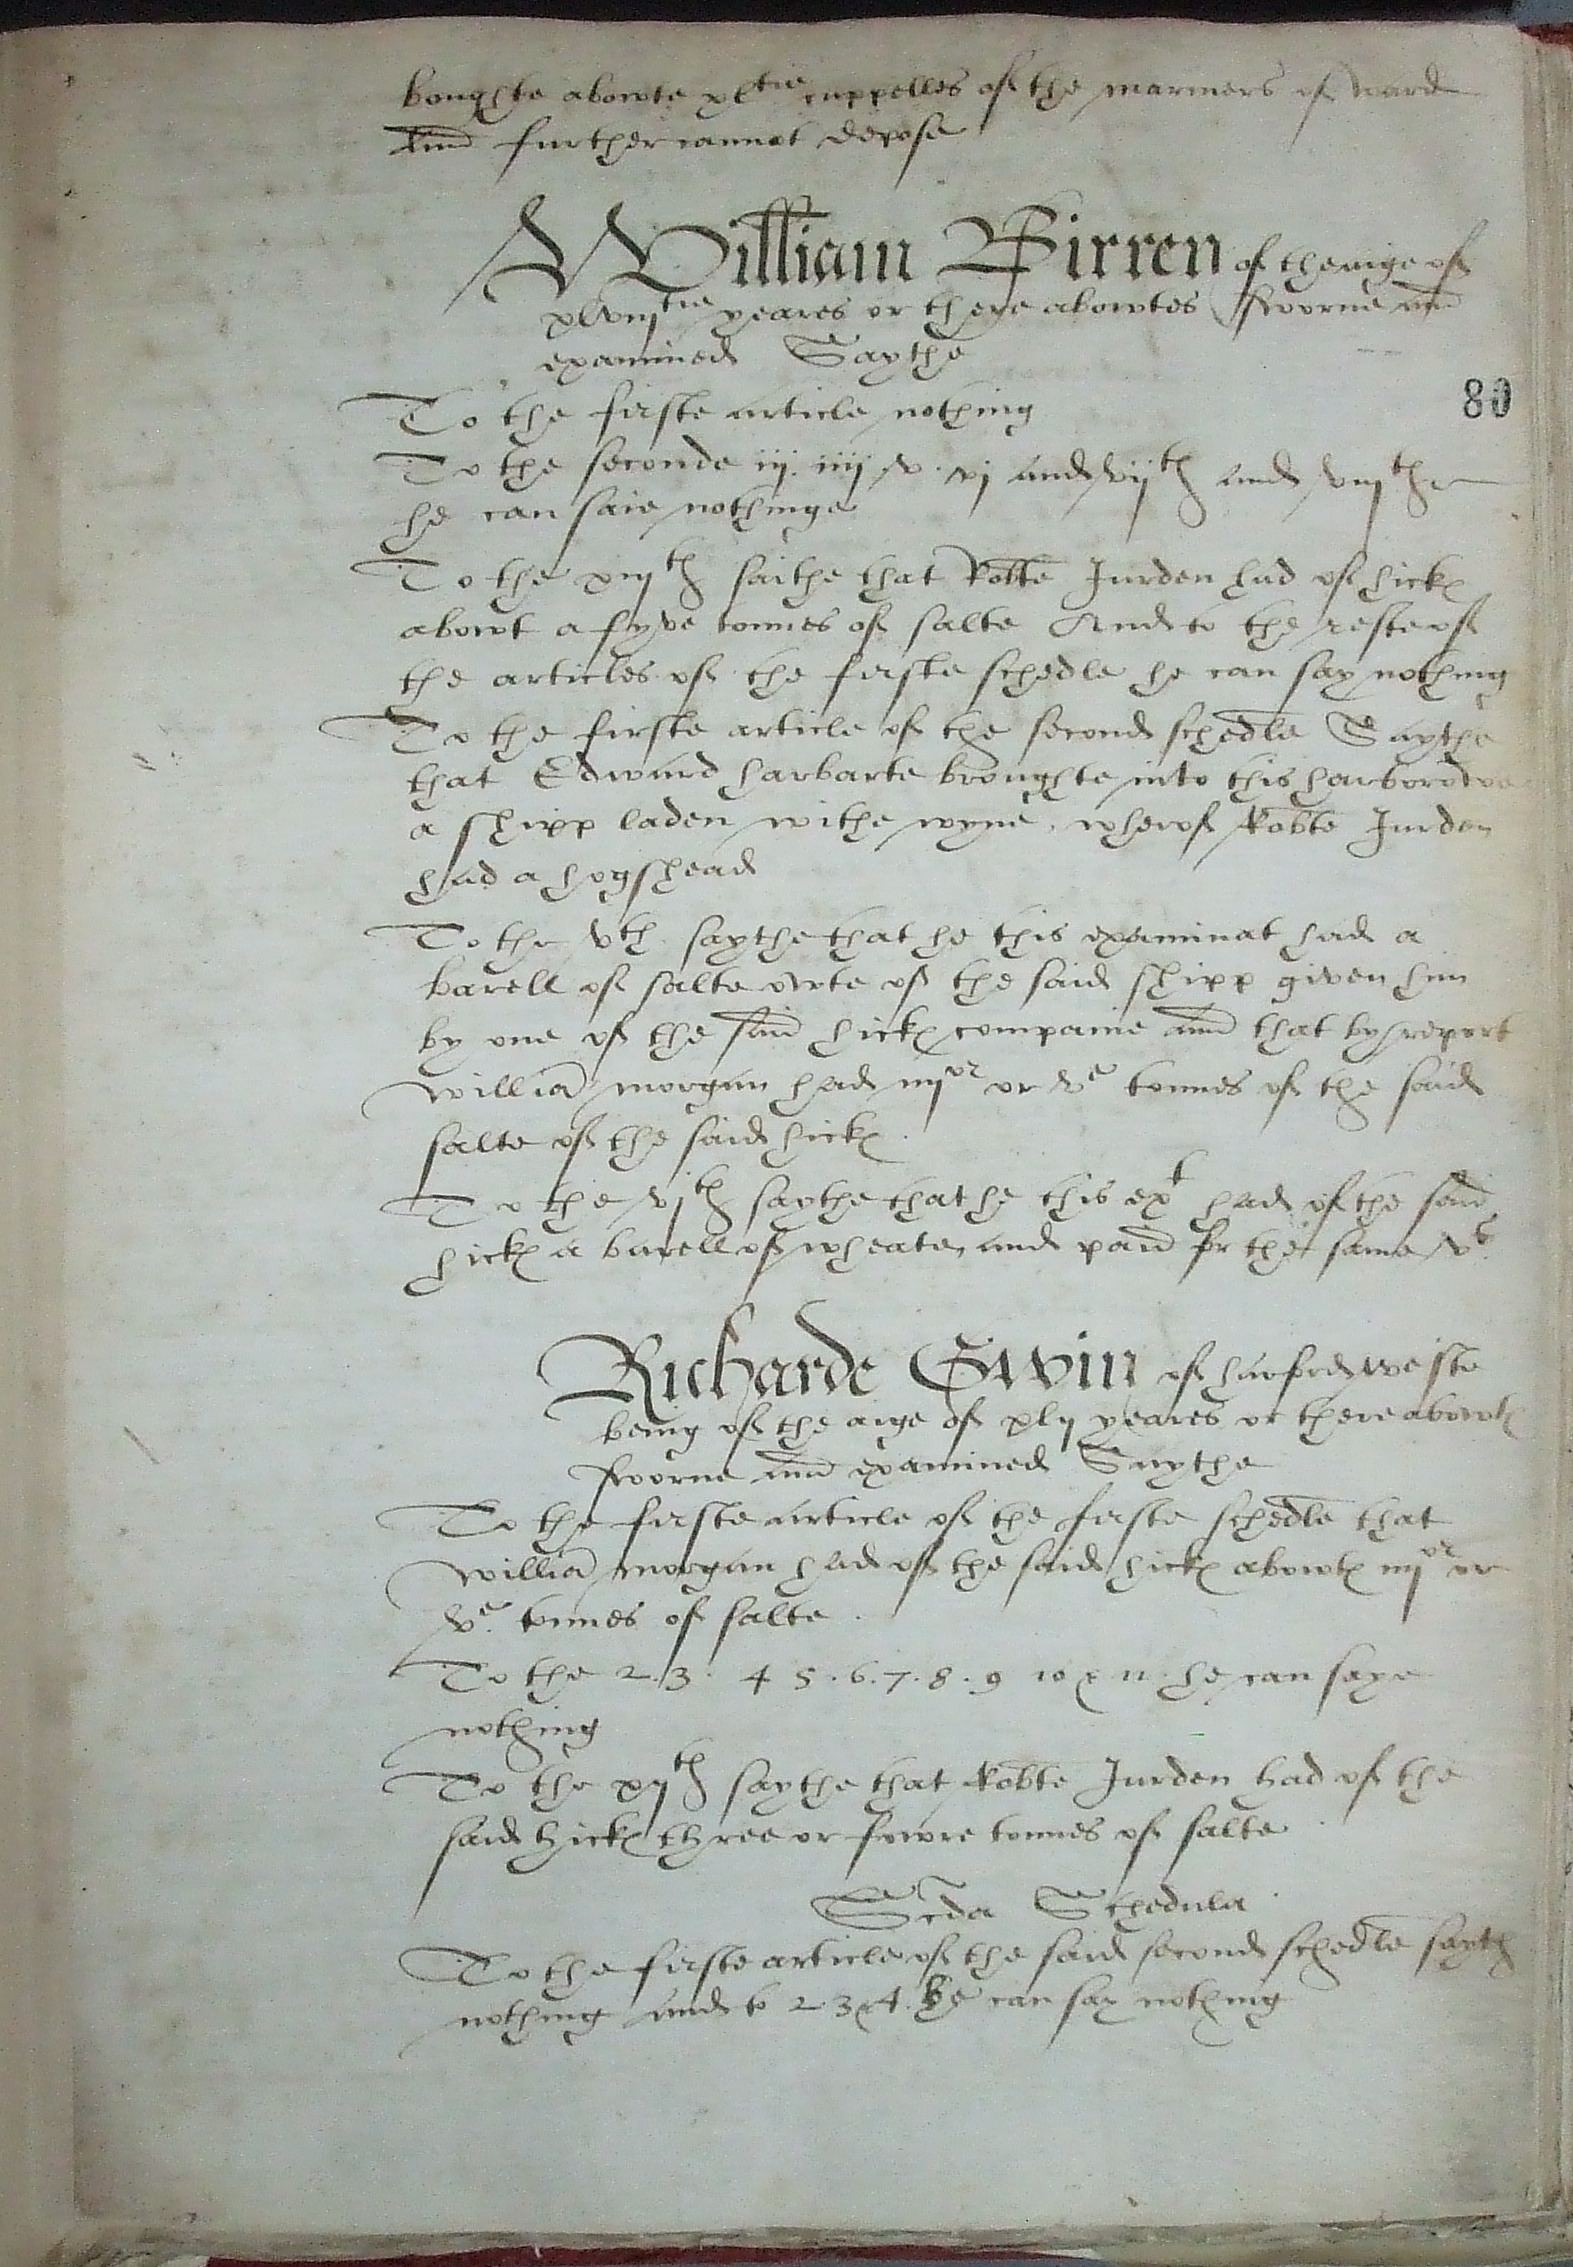 boughte abowte xl^tie cuppelles of the marriners of ward
And further cannot depose
William Birren of the aige of
xlviij^tie yeares or there abowtes sworne and
examined Saythe
To the firste article nothing
80
To the seconde iij. iiij v. vj and vij^th and viij^the
he can saie nothinge
To the xij^th saithe that Robte Jurden had of hick
abowt a fyve tonnes of salte And to the reste of
the articles of the firste schedle he can say nothing
To the firste article of the second schedle Saythe
that Edward harbarte broughte into this harborowe
a shipp laden withe wyne, wherof Robte Jurden
had a hogshead
To the vth saythe that he this examinat had a
barell of salte owte of the said shipp given him
by one of the said hick companie and that by report
william morgan had iiij^or or v^e tonnes of the said
salte of the said hick.
To the vj^th saythe that he this ex^t had of the said
hick a barell of wheate, and paid for the same v^s
Richarde Gwin of harford weste
being of the aige of xlij yeares or there abowt
sworne and examined Saythe
To the firste article of the firste schedle that
william morgan had of the said hick abowt iiij^or or
v^e. tonnes of salte.
To the 2. 3. 4 5. 6. 7. 8. 9 10 & 11. he can saye
nothing
To the xij^th saythe that Robte Jurden had of the
said hick three or fowre tonnes of salte.
Scda Schedula.
To the firste article of the said second schedle sayth
nothing and to 2 3 & 4. he can say nothing